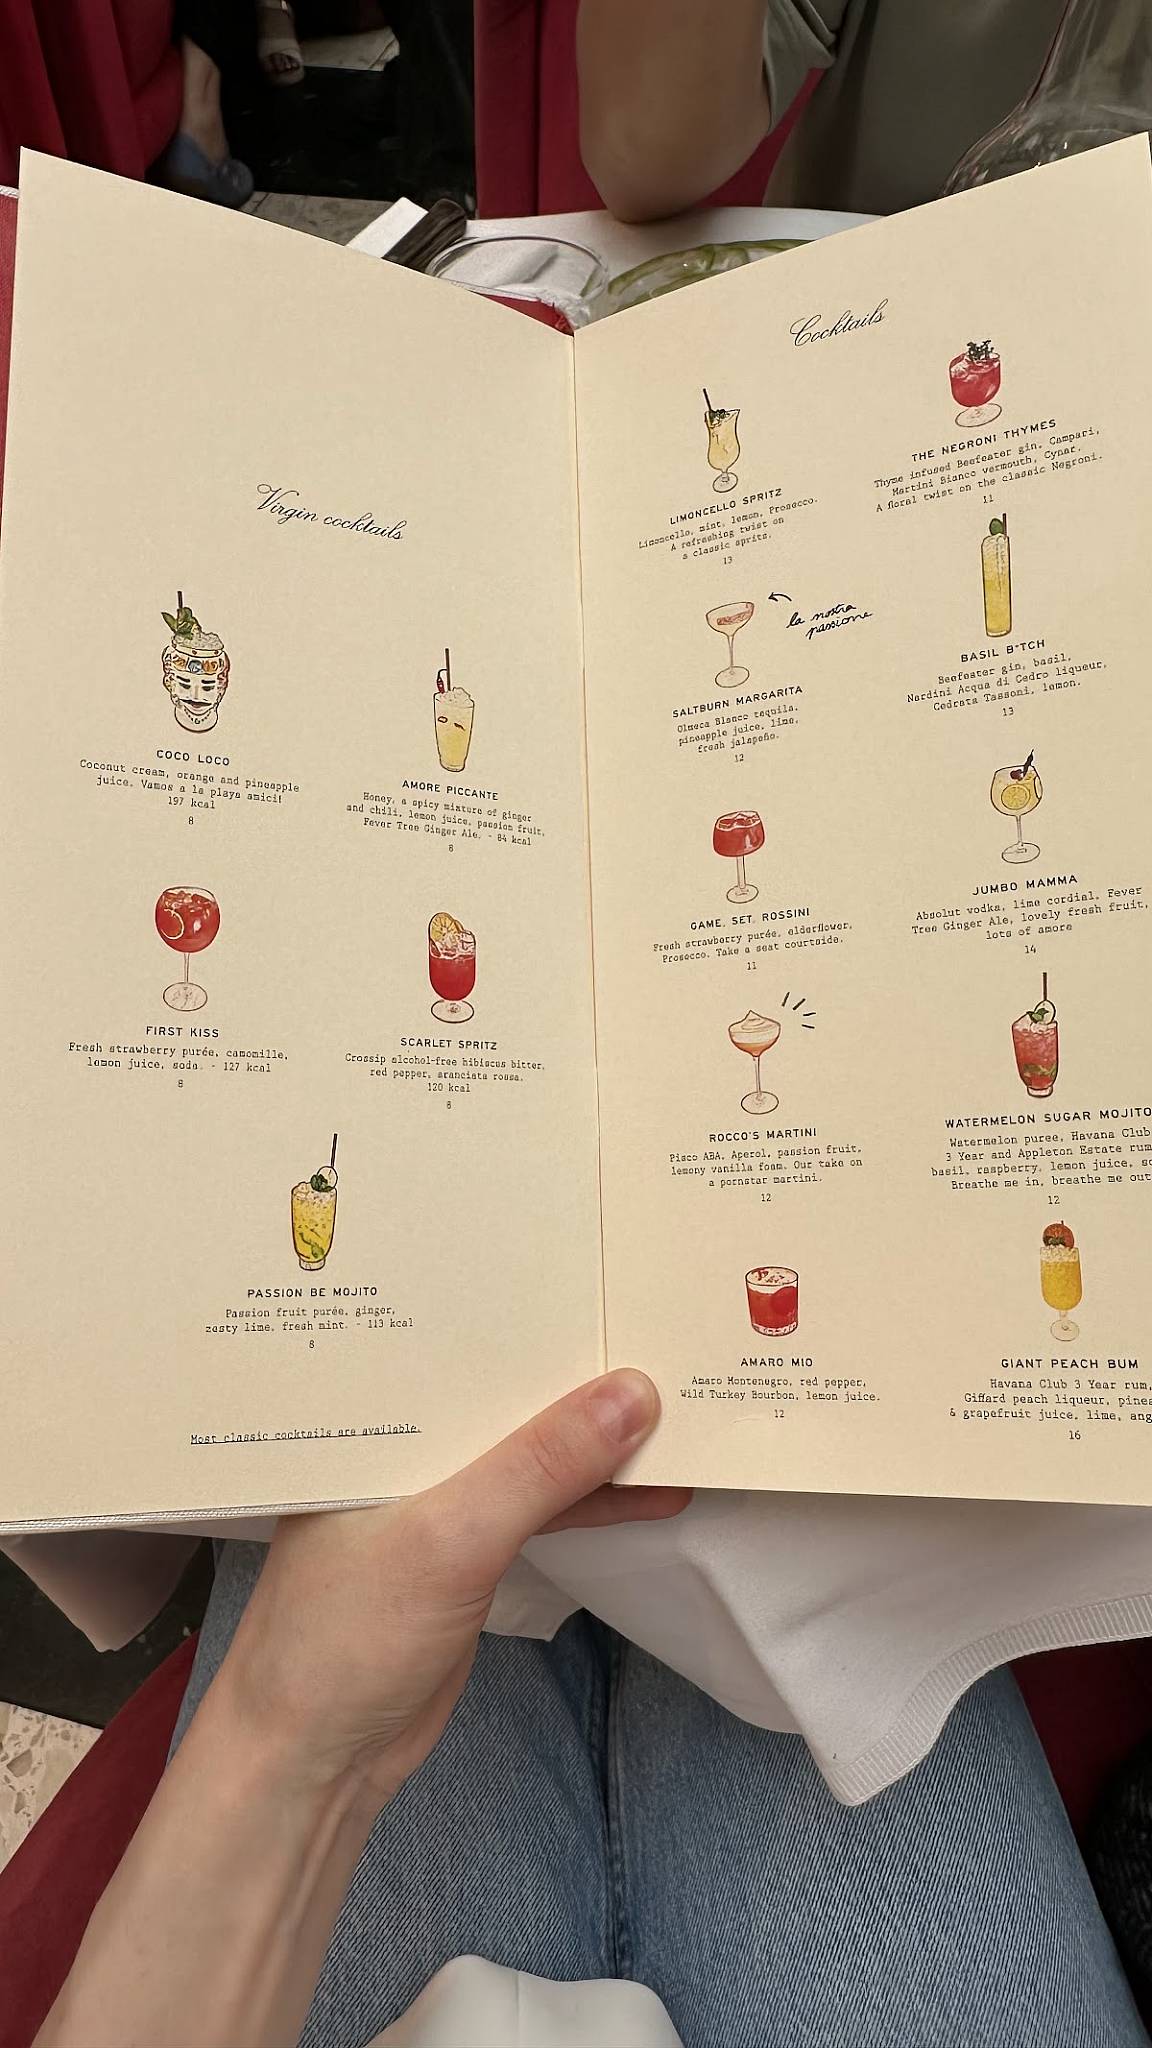 Virgin cocktails
COCO LOCO
Coconut cream, orange and pineapple
juice. Vamos a la playa amici!
197 kcal
8
AMORE PICCANTE
Honey, a spicy mixture of ginger
and chili, lemon juice, passion fruit,
Fever Tree Ginger Ale. - 84 kcal
8
FIRST KISS
Fresh strawberry purée, camomille,
lemon juice, soda. - 127 kcal
8
SCARLET SPRITZ
Crossip alcohol-free hibiscus bitter,
red pepper, aranciata rossa.
120 kcal
8
PASSION BE MOJITO
Passion fruit purée, ginger,
zesty lime, fresh mint. - 113 kcal
8
Most classic cocktails are available.
Cocktails
LIMONCELLO SPRITZ
Limoncello, mint, lemon, Prosecco.
A refreshing twist on
a classic spritz.
13
THE NEGRONI THYMES
Thyme infused Beefeater gin, Campari,
Martini Bianco vermouth, Cynar.
A floral twist on the classic Negroni.
11
la nostra
passione
SALTBURN MARGARITA
Olmeca Blanco tequila,
pineapple juice, lime,
fresh jalapeño.
12
BASIL B*TCH
Beefeater gin, basil,
Nardini Acqua di Cedro liqueur,
Cedrata Tassoni, lemon.
13
GAME, SET, ROSSINI
Fresh strawberry purée, elderflower,
Prosecco. Take a seat courtside.
11
JUMBO MAMMA
Absolut vodka, lime cordial, Fever
Tree Ginger Ale, lovely fresh fruit,
lots of amore
14
ROCCO'S MARTINI
Pisco ABA, Aperol, passion fruit,
lemony vanilla foam. Our take on
a pornstar martini.
12
WATERMELON SUGAR MOJITO
Watermelon puree, Havana Club
3 Year and Appleton Estate rum
basil, raspberry, lemon juice, so
Breathe me in, breathe me out
12
AMARO MIO
Amaro Montenegro, red pepper,
Wild Turkey Bourbon, lemon juice.
12
GIANT PEACH BUM
Havana Club 3 Year rum,
Giffard peach liqueur, pinea
& grapefruit juice, lime, ang
16